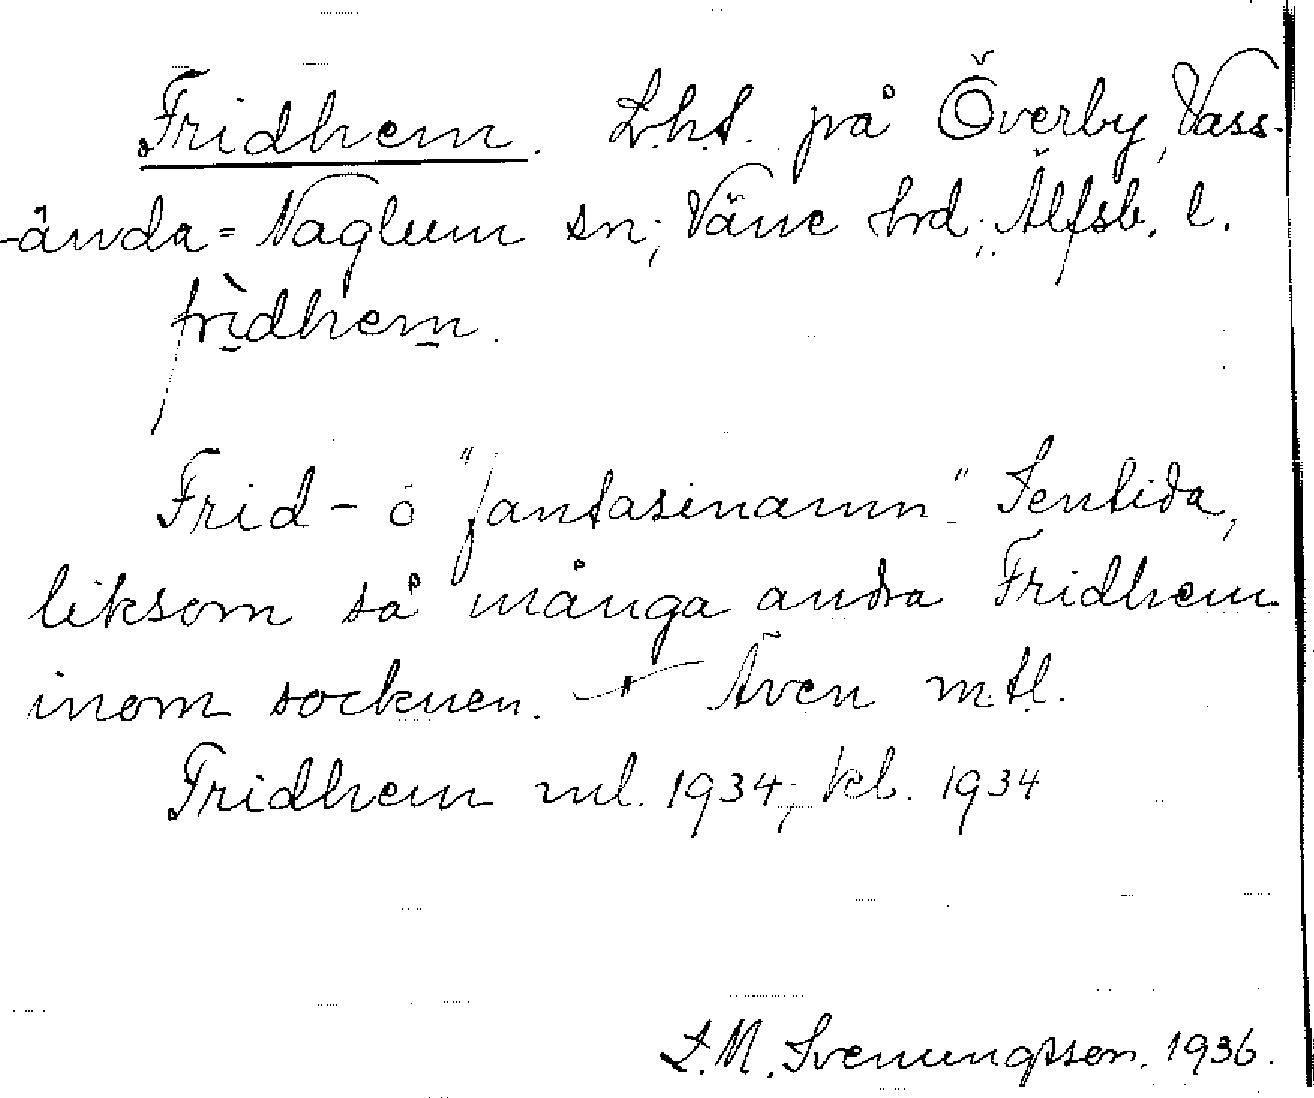 Fridhem. Lht. på Överby, Vass-
-ända-Naglum sn; Väne hrd; Älfsb. l.
frìdhem.
Frid- o "fantasinamn". Sentida,
liksom så många andra Fridhem
inom socknen. — Även m.tl.
Fridhem ml. 1934; kl. 1934
L.M. Svenungsson. 1936.